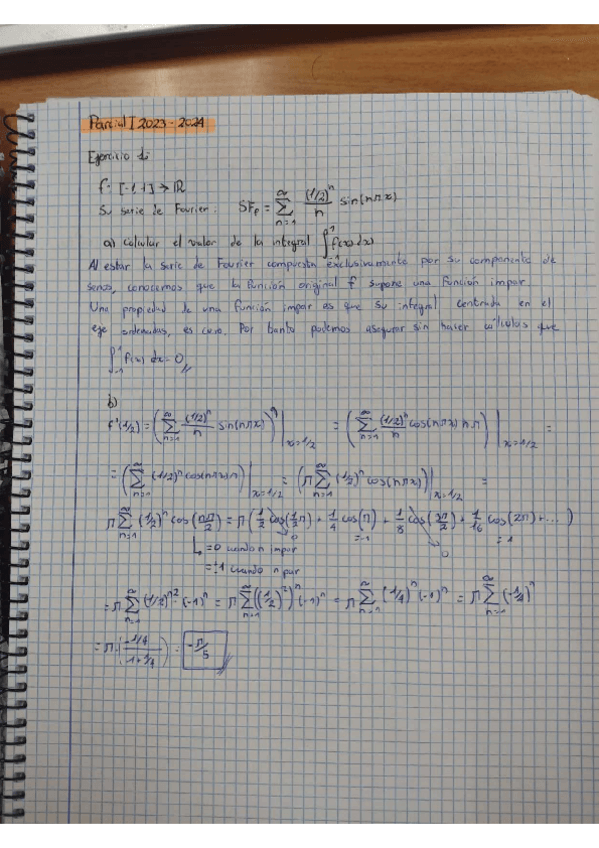 Parcial I 2023-2024
Ejercicio 1:
f: [-1,1] → ℝ
Su serie de Fourier: SF_f = ∑_{n=1}^{∞} (1/2)^n / n sin(nπx)
a) Calcular el valor de la integral ∫_{-1}^{1} f(x)dx)
Al estar la serie de Fourier compuesta exclusivamente por su componente de
senos, conocemos que la función original f supone una función impar.
Una propiedad de una función impar es que su integral centrada en el
eje ordenadas, es cero. Por tanto podemos asegurar sin hacer cálculos que
∫_{-1}^{1} f(x) dx = 0
b)
f'(1/2) = (∑_{n=1}^{∞} (1/2)^n / n sin(nπx))' |_{x=1/2} = (∑_{n=1}^{∞} (1/2)^n / n cos(nπx) n·π) |_{x=1/2} =
= (∑_{n=1}^{∞} (1/2)^n cos(nπx)π) |_{x=1/2} = (π ∑_{n=1}^{∞} (1/2)^n cos(nπx)) |_{x=1/2} =
π ∑_{n=1}^{∞} (1/2)^n cos(nπ/2) = π (1/2 cos(1/2 π) + 1/4 cos(π) + 1/8 cos(3π/2) + 1/16 cos(2π) + ...)
0 =-1 0 =1
↳ =0 cuando n impar
=±1 cuando n par
= π ∑_{n=1}^{∞} (1/2)^{n2} · (-1)^n = π ∑_{n=1}^{∞} ((1/2)^2)^n (-1)^n = π ∑_{n=1}^{∞} (1/4)^n (-1)^n = π ∑_{n=1}^{∞} (-1/4)^n
= π · (-1/4 / 1+1/4) = -π/5